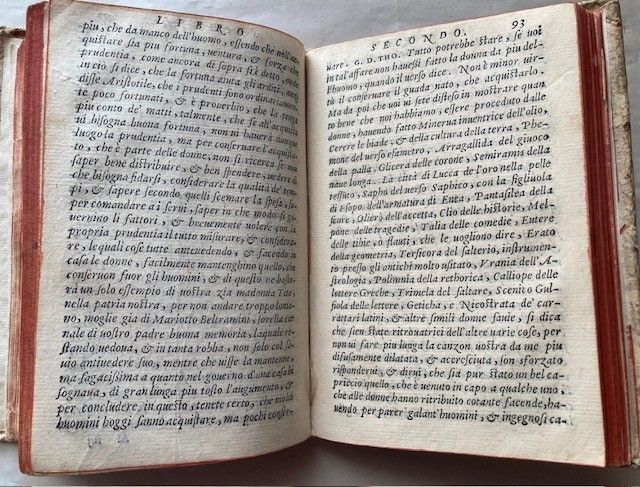 LIBRO
piu, che da manco dell'huomo, essendo che nell'ac-
quistare sia piu fortuna, uentura, & forza che
prudentia, come ancora di sopra s'è detto, onde
in ciò si dice, che la fortuna aiuta gli arditi, anzi
disse Aristotile, che i prudenti sono ordinariamen-
te poco fortunati, & è prouerbio, che la tengo
piu conto de' matti, talmente, che se all'acquisto
ui bisogna buona fortuna, non ui hauerà dunque
luogo la prudentia, ma per conseruare l'acquista-
to, che è parte delle donne, non si ricerca se non
saper bene distribuire, & ben spendere, uedere di
che bisogna fidarsi, considerare la qualità de' tem-
pi, & sapere secondo quelli scemare la spesa, sa-
per comandare a i serui, saper in che modo si go-
uernino li fattori, & breuemente uolere con la
propria prudentia il tutto misurare, & considera-
re, le quali cose tutte antenedendo, & facendo in
casa le donne, facilmente mantenghino quello, che
conseruon fuor gli huomini, & di questo ne baste-
rà un solo essempio di nostra zia madonna Tita,
nella patria nostra, per non andare troppo lonta-
no, moglie gia di Mariotto Beltramini, sorella car-
nale di uostro padre buona memoria, laquale re-
stando uedoua, & in tanta robba, non solo col sa-
uio antiuedere suo, mentre che uisse la mantenne,
ma sagacissima a quanto nel gouerno d'una casa bi-
sognaua, di gran lunga piu tosto l'augumento, &
per concludere, in questo, tenete certo, che molti
huomini hoggi sanno acquistare, ma pochi conser-
SECONDO. 93
uare. G. D. THO. Tutto potrebbe stare, se uoi
in tal'affare non hauessi fatto la donna da piu del-
l'huomo, quando il uerso dice. Non è minor uir-
tù il conseruare il guadagnato, che acquistarlo.
Ma da poi che uoi ui sete disteso in mostrare quan-
to bene che noi habbiamo, essere proceduto dalle
donne, hauendo fatto Minerua inuentrice dell'olio,
Cerere le biade, & della cultura della terra, Phe-
mone del uerso esametro, Arragallida del giuoco
della palla, Glicera delle corone, Semiramis della
naue longa. La città di Lucca de l'oro nella pelle
tessuto, Sapho del uerso Saphico, con la figliuola
di Esopo, dell'armatura di Enea, Pantasilea della
secure, Olierò dell'accetta, Clio delle historie, Mel-
pone delle tragedie, Talia delle comedie, Eutere
delle tibie, ò flauti, che le uogliono dire, Erato
della geometria, Tersicora del salterio, instrumen-
to presso gli antichi molto usitato, Vrania dell'A-
strologia, Polimnia della rethorica, Calliope delle
lettere Greche, Trimela del saltare, Scenito Gul-
fiola delle lettere, Geticha, e Nicostrata de' car-
rattari latini, & altre simili donne sauie, si dica
che sien state ritrouatrici dell'altre uarie cose, per
non ui fare piu lunga la canzon uostra da me piu
difusamente dilatata, & accresciuta, son sforzato
risponderui, & dirui, che sia pur stato un bel ca-
priccio quello, che è uenuto in capo a qualche uno,
che alle donne hanno ritribuito cotante facende, ha-
uendo per parer galant'huomini, & ingegnosi ca-